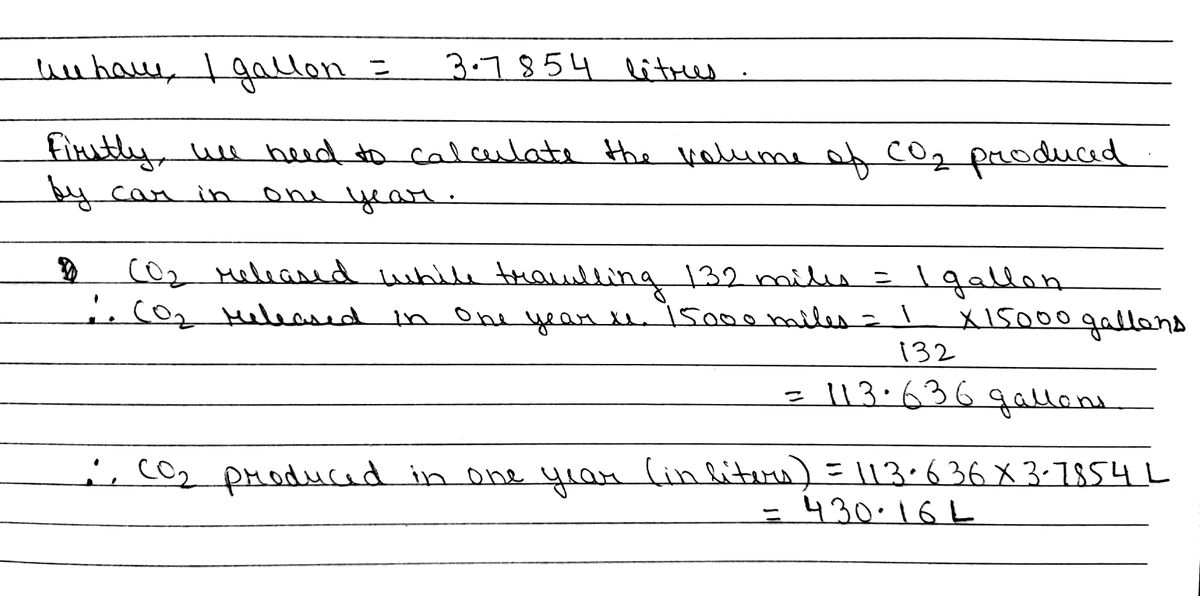 We have, 1 gallon = 3.7854 litres.
Firstly, we need to calculate the volume of CO2 produced
by car in one year.
CO2 released while travelling 132 miles = 1 gallon
∴ CO2 released in one year ie. 15000 miles = 1/132 × 15000 gallons
= 113.636 gallons.
∴ CO2 produced in one year (in liters) = 113.636 × 3.7854 L
= 430.16 L